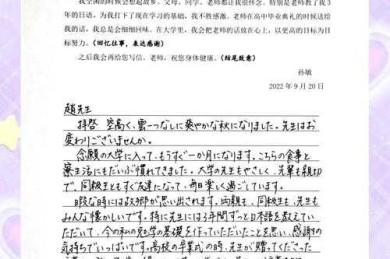 我空闲的时候会想起故乡，父母、同学、老师都让我很怀念，特别是老师教了我 3
年的日语，为我打下了现在学习的基础，我不胜感激。老师在高中毕业典礼的时候送给
我的话，我总是会细细回味。在大学里，我会把老师的话放在心上，以更高的目标为目
标努力。（回忆往事，表达感谢）
之后我会再给您写信。老师，祝您身体健康。（结尾致意）
孙敏
2022 年 9 月 20 日
趙先生
拝啓 空高く、雲一つなしに爽やかな秋になりました。先生はお
変わりございませんか。
念願の大学に入って、もうすぐ一か月になります。こちらの食事と
寮生活にもだいぶ慣れてきました。大学の先生もやさしく、先輩も親切
で、同級生ともすぐ友達になって、毎日楽しく過ごしています。
暇な時には故郷が思い出されます。両親も、同級生も、先生も
みんな懐かしいです。特に先生には3年間ずっと日本語を教えてい
ただいて、今の私の勉学の基礎を作っていただいたことを思い、感謝の
気持ちでいっぱいです。高校の卒業式の時、先生が贈ってくださった